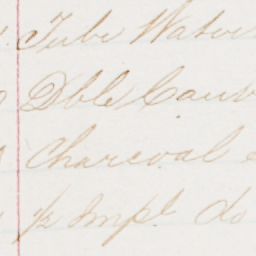 Tube Water
Dble Canv
Charcoal
½ Impl do